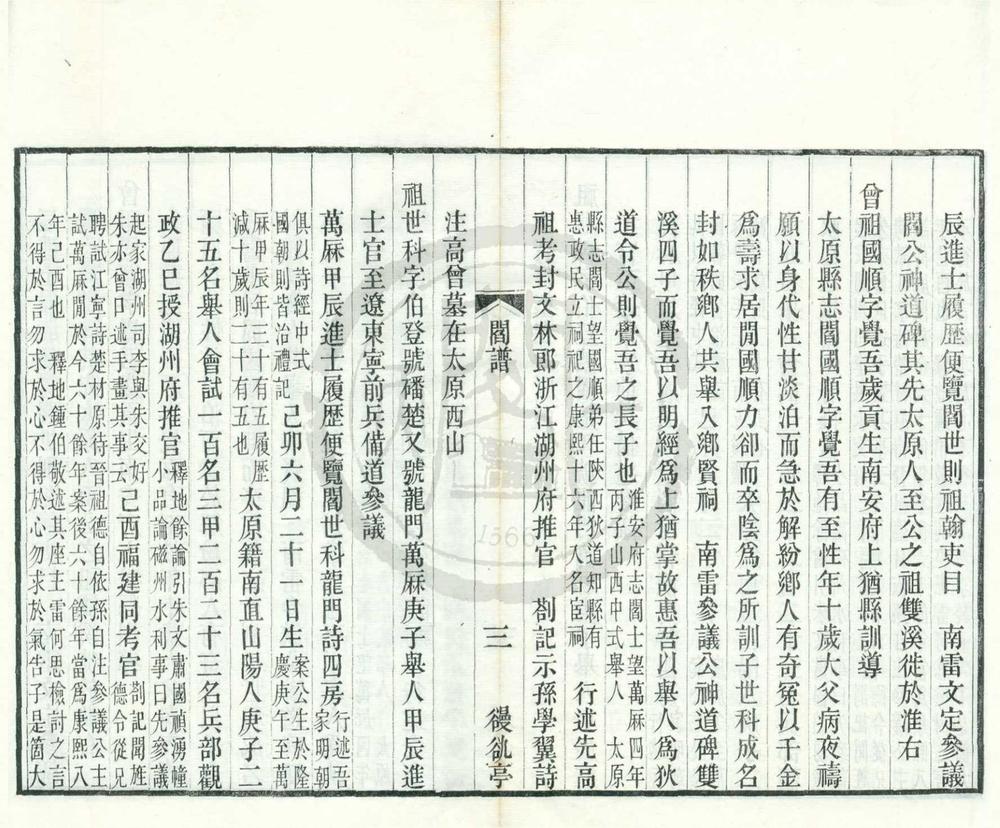 辰進士履歷便覽閻世則祖翰吏目　南雷文定參議
閻公神道碑其先太原人至公之祖雙溪徙於淮右
曾祖國順字覺吾歲貢生南安府上猶縣訓導
太原縣志閻國順字覺吾有至性年十歲大父病夜禱
願以身代性甘淡泊而急於解紛鄉人有奇冤以千金
爲壽求居閒國順力卻而卒陰爲之所訓子世科成名
封如秩鄉人共舉入鄉賢祠　南雷參議公神道碑雙
溪四子而覺吾以明經爲上猶掌故惠吾以舉人爲狄
道令公則覺吾之長子也
淮安府志閻士望萬厤四年
丙子山西中式舉人　太原
縣志閻士望國順弟任陝西狄道知縣有
惠政民立祠祀之康熙十六年入名宦祠
行述先高
祖考封文林郎浙江湖州府推官　劄記示孫學翼詩
注高曾墓在太原西山
祖世科字伯登號磻楚又號龍門萬厤庚子舉人甲辰進
士官至遼東寧前兵備道參議
萬厤甲辰進士履歷便覽閻世科龍門詩四房
行述吾
家明朝
俱以詩經中式
國朝則皆治禮記
己卯六月二十一日生
案公生於隆
慶庚午至萬
厤甲辰年三十有五履歷
減十歲則二十有五也
太原籍南直山陽人庚子二
十五名舉人會試一百名三甲二百二十三名兵部觀
政乙巳授湖州府推官
釋地餘論引朱文肅國禎湧幢
小品論磁州水利事曰先參議
起家湖州司李與朱交好
朱亦曾口述手畫其事云
己酉福建同考官
劄記聞姙
德令從兄
聘試江寧詩楚材原待晉祖德自依孫自注參議公主
試萬厤閒於今六十餘年案後六十餘年當爲康熙八
年己酉也　釋地鍾伯敬述其座主雷何思檢討之言
不得於言勿求於心不得於心勿求於氣告子是箇大
閻譜
三
㵘㳄亭